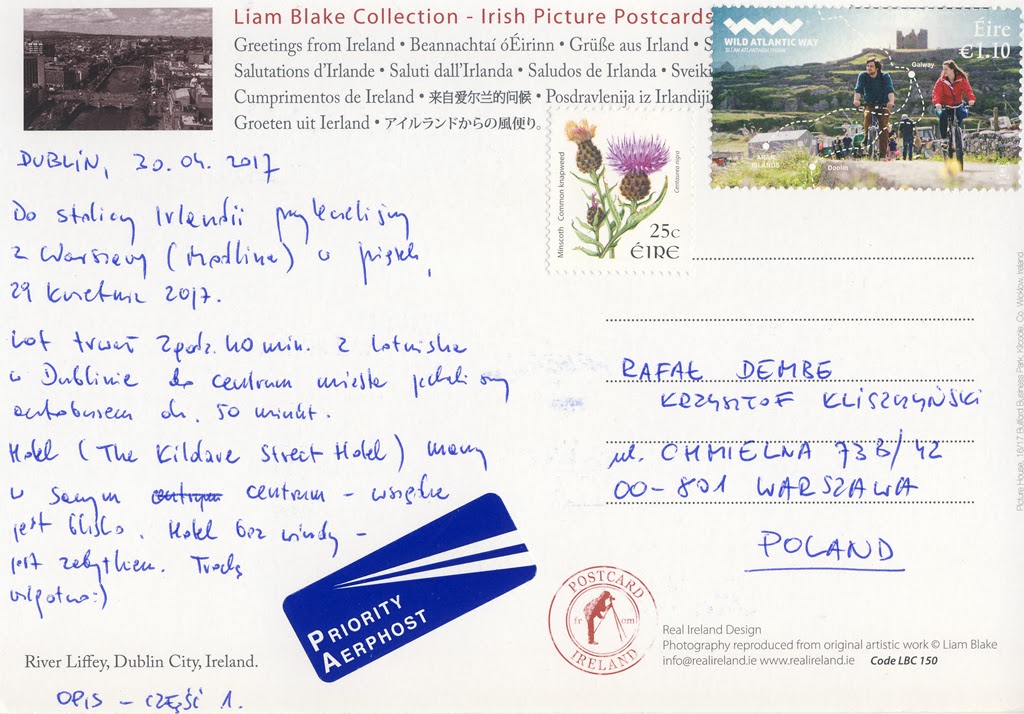 Liam Blake Collection - Irish Picture Postcards
Greetings from Ireland • Beannachtaí óÉirinn • Grüße aus Irland • S
Salutations d'Irlande • Saluti dall'Irlanda • Saludos de Irlanda • Sveiki
Cumprimentos de Ireland • 来自爱尔兰的问候 • Posdravlenija iz Irlandiji
Groeten uit Ierland • アイルランドからの風便り。
WILD ATLANTIC WAY
SLÍ AN ATLANTAIGH FHIÁIN
Éire
€1.10
Galway
ARAN
ISLANDS
Doolin
Minscoth Common knapweed
Centaurea nigra
25c
ÉIRE
DUBLIN, 30.04.2017
Do stolicy Irlandii przylecieliśmy
z Warszawy (Modlina) w piątek,
29 kwietnia 2017.
Lot trwał 2 godz. 40 min. Z lotniska
w Dublinie do centrum miasta jechaliśmy
autobusem ok. 50 minut.
Hotel (The Kildare Street Hotel) mamy
w samym centrum - wszędzie
jest blisko. Hotel bez windy -
jest zabytkiem. Trochę
wilgotno :)
RAFAŁ DEMBE
KRZYSZTOF KLISZCZYŃSKI
ul. CHMIELNA 73B/42
00-801 WARSZAWA
POLAND
PRIORITY
AERPHOST
POSTCARD
from
IRELAND
Real Ireland Design
Photography reproduced from original artistic work © Liam Blake
info@realireland.ie www.realireland.ie Code LBC 150
Picture House, 16/17 Bulford Business Park, Kilcoole, Co. Wicklow, Ireland.
River Liffey, Dublin City, Ireland.
OPIS - CZĘŚĆ 1.